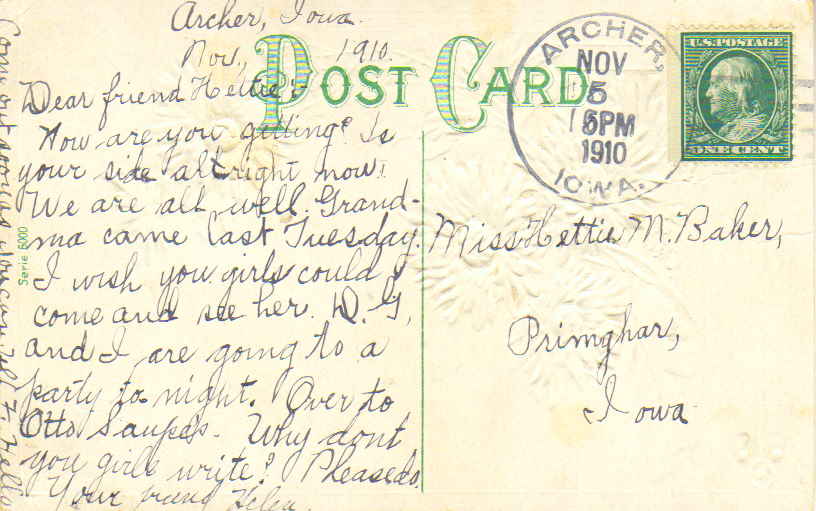 Archer, Iowa.
Nov., 1910.
POST CARD
Dear friend Hettie:-
How are you getting? Is
your side alright now?
We are all well. Grand-
ma came last Tuesday.
I wish you girls could
come and see her. D. G,
and I are going to a
party to night. Over to
Otto
Why dont
you girls write? Please do.
Your friend Helen.
Come out soon as you can.
Serie 6000
ARCHER,
NOV
5
6PM
1910
IOWA.
U.S. POSTAGE
ONE CENT
Miss Hettie M. Baker,
Primghar,
Iowa